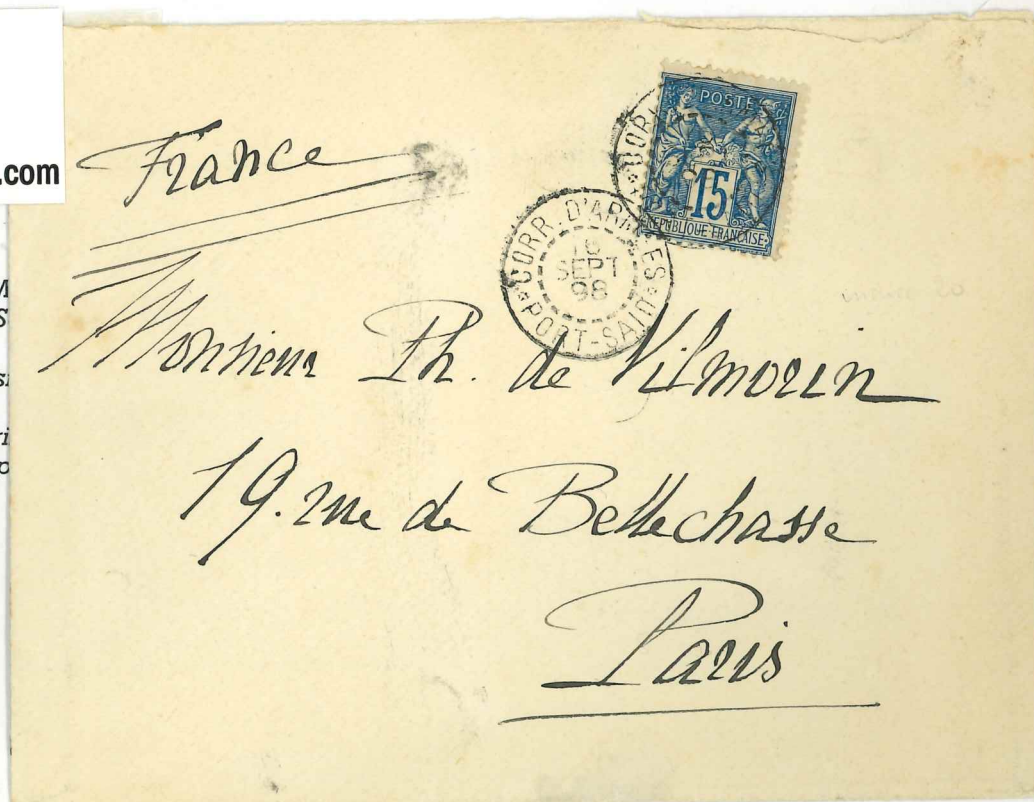 .com
France
POSTE
15
REPUBLIQUE FRANÇAISE
CORR. D'ARMÉES
SEPT
98
PORT-SAID
Monsieur Ph. de Vilmorin
19. rue de Bellechasse
Paris